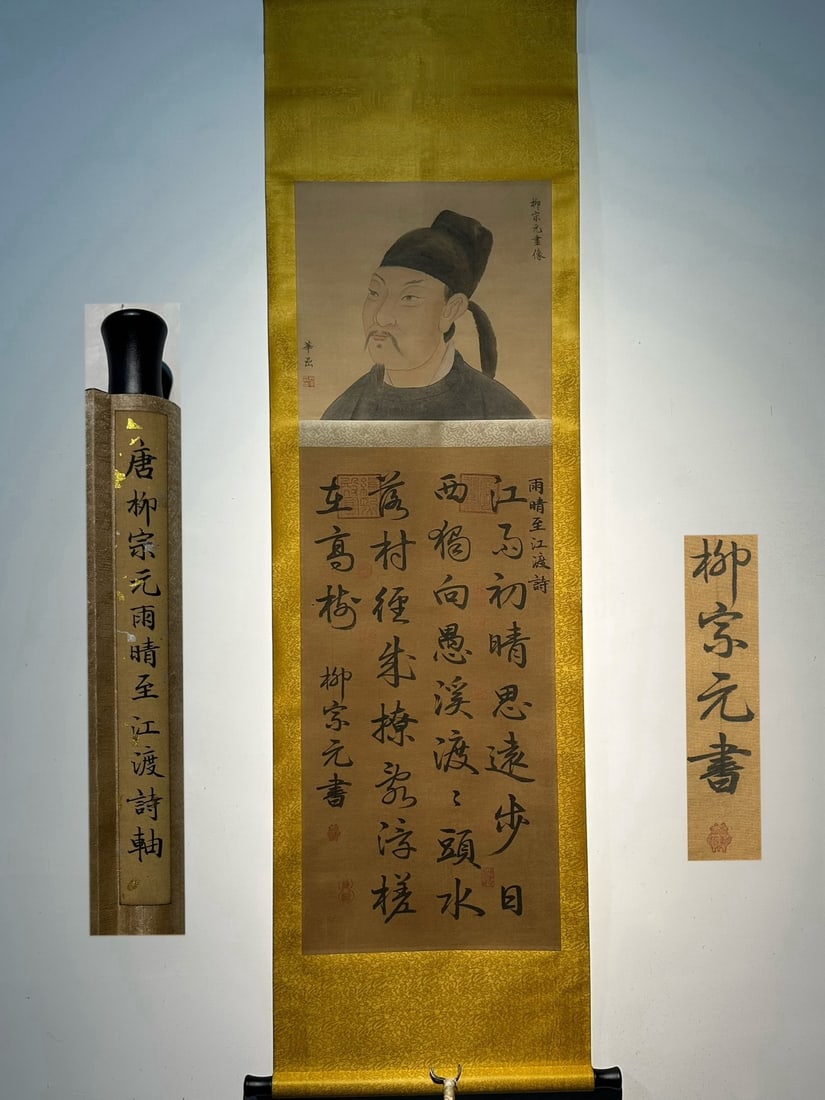 唐柳宗元雨晴至江渡詩軸
柳宗元畫像
雨晴至江渡詩
江雨初晴思遠步日
西獨向愚溪渡〻頭水
落村徑成撩亂浮槎
在高樹
柳宗元書
柳宗元書